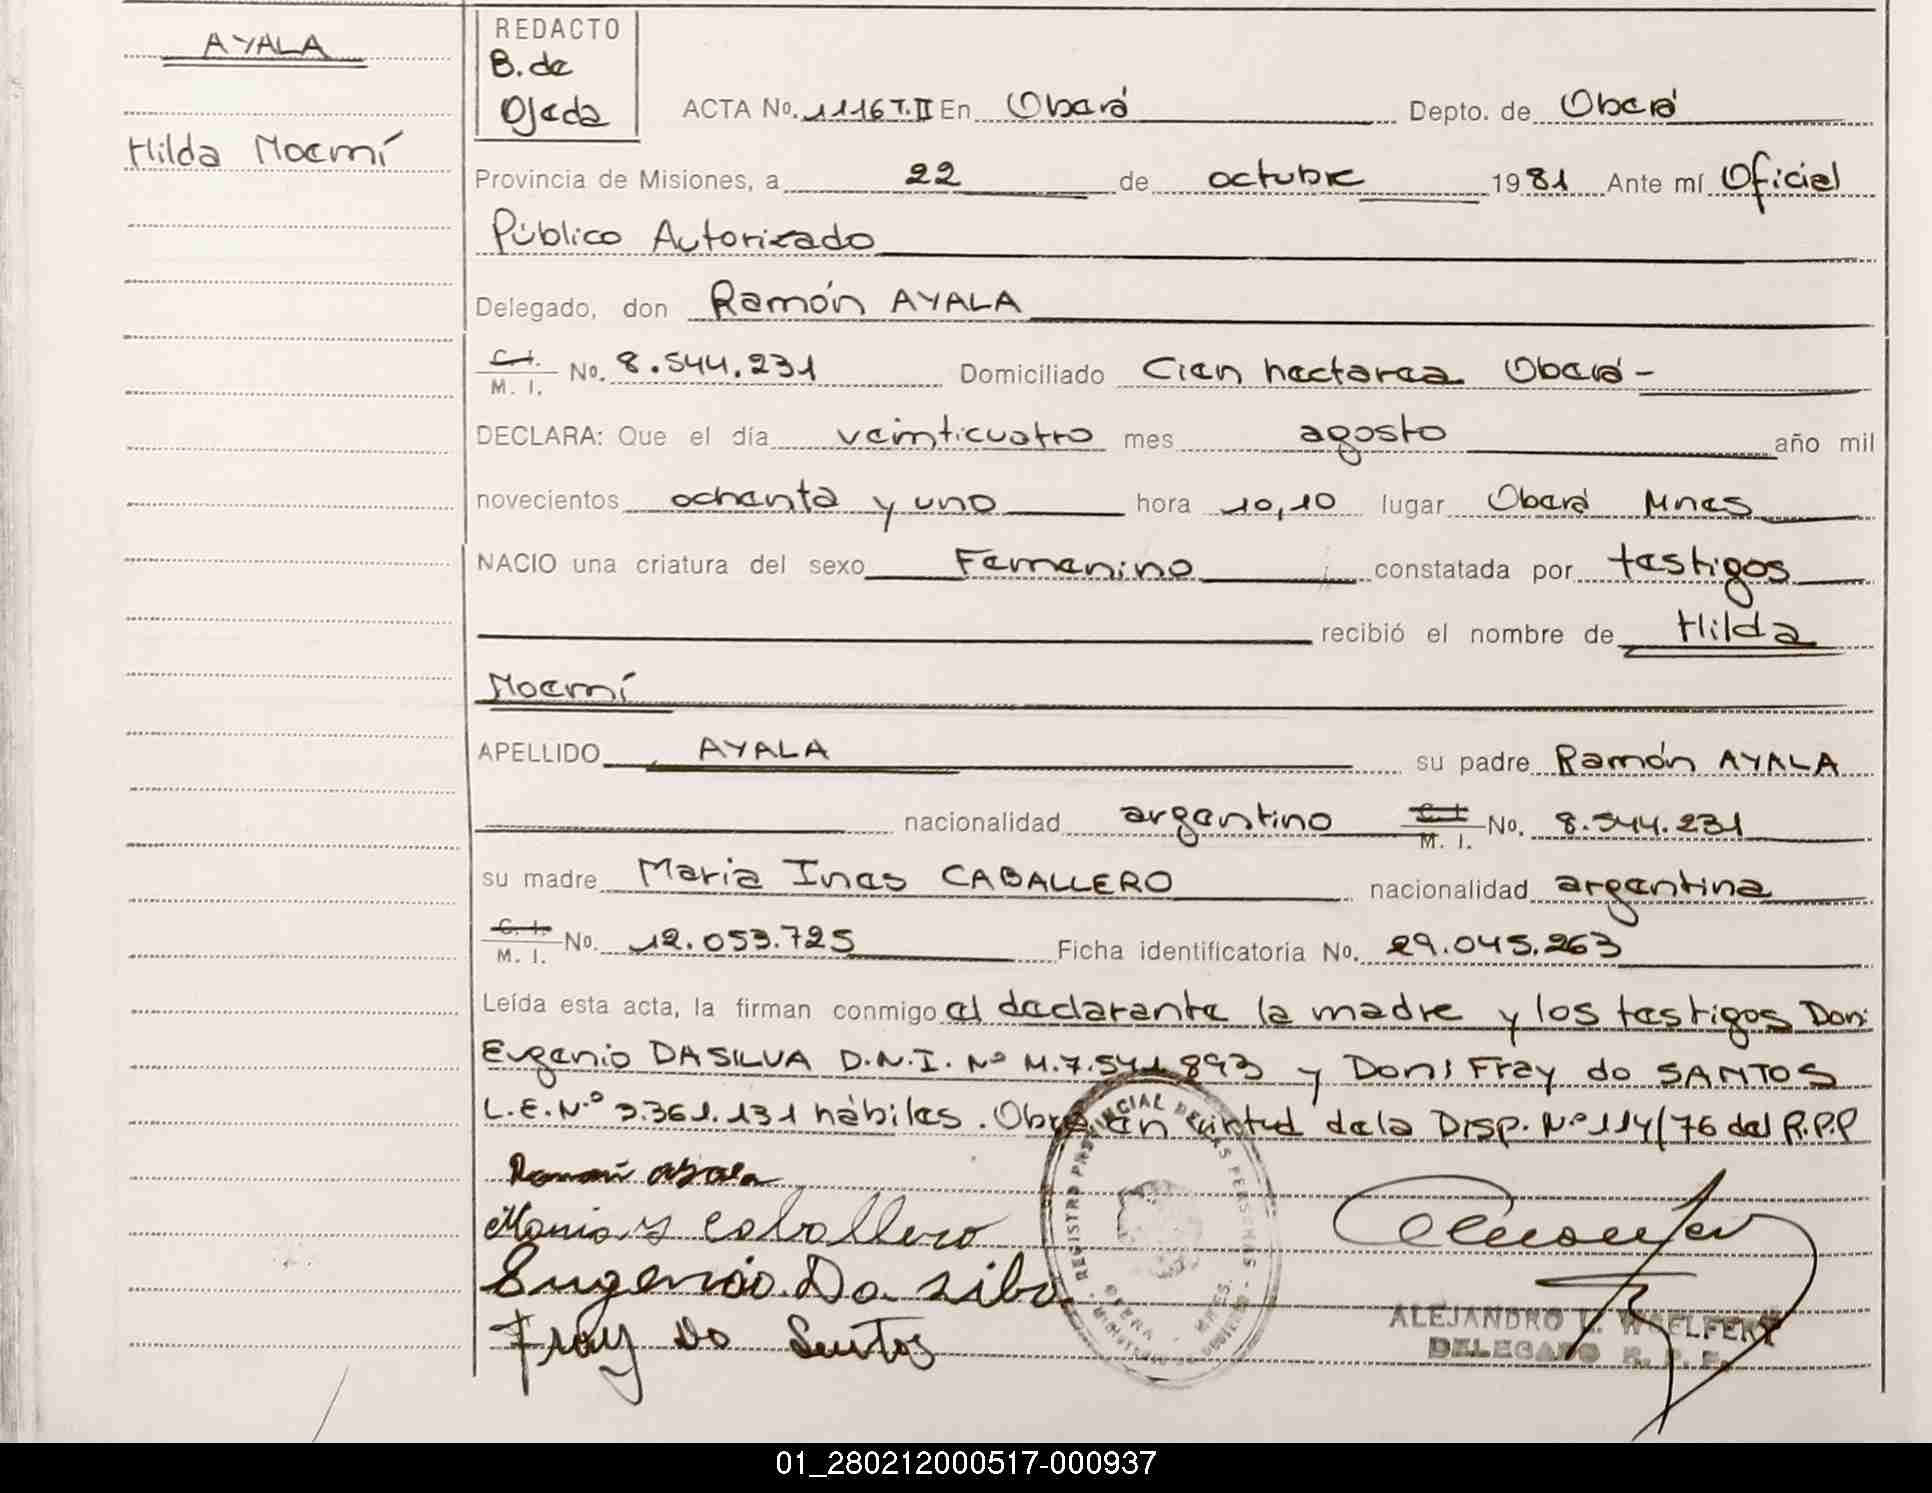 AYALA
Hilda Noemí
REDACTO
B. de
Ojeda
ACTA No. 1116 T.II En Oberá Depto. de Oberá
Provincia de Misiones, a 22 de octubre 1981 Ante mí Oficial
Público Autorizado
Delegado, don Ramón AYALA
C. I. / M. I. No. 8.544.231 Domiciliado Cien hectarea Oberá -
DECLARA: Que el día veinticuatro mes agosto año mil
novecientos ochenta y uno hora 10,10 lugar Oberá Mnes
NACIO una criatura del sexo Femenino constatada por testigos
recibió el nombre de Hilda
Noemí
APELLIDO AYALA su padre Ramón AYALA
nacionalidad argentino C. I. / M. I. No. 8.544.231
su madre Maria Ines CABALLERO nacionalidad argentina
C. I. / M. I. No. 12.053.725 Ficha identificatoria No. 29.045.263
Leída esta acta, la firman conmigo el declarante la madre y los testigos Don:
Eugenio DA SILVA D.N.I. Nº M.7.541.893 y Don: Fray do SANTOS
L.E.N.º 3.361.131 hábiles. Obre en virtud de la Disp. N.º 114/76 del R.P.P
Ramón ayala
Maria Y Caballero
Eugenio Da silva
Fray Do Santos
REGISTRO PROVINCIAL DE LAS PERSONAS
OBERA - MNES.
MINISTERIO DE GOBIERNO
ALEJANDRO L. WOELFERT
DELEGADO R. P. P.
01_280212000517-000937